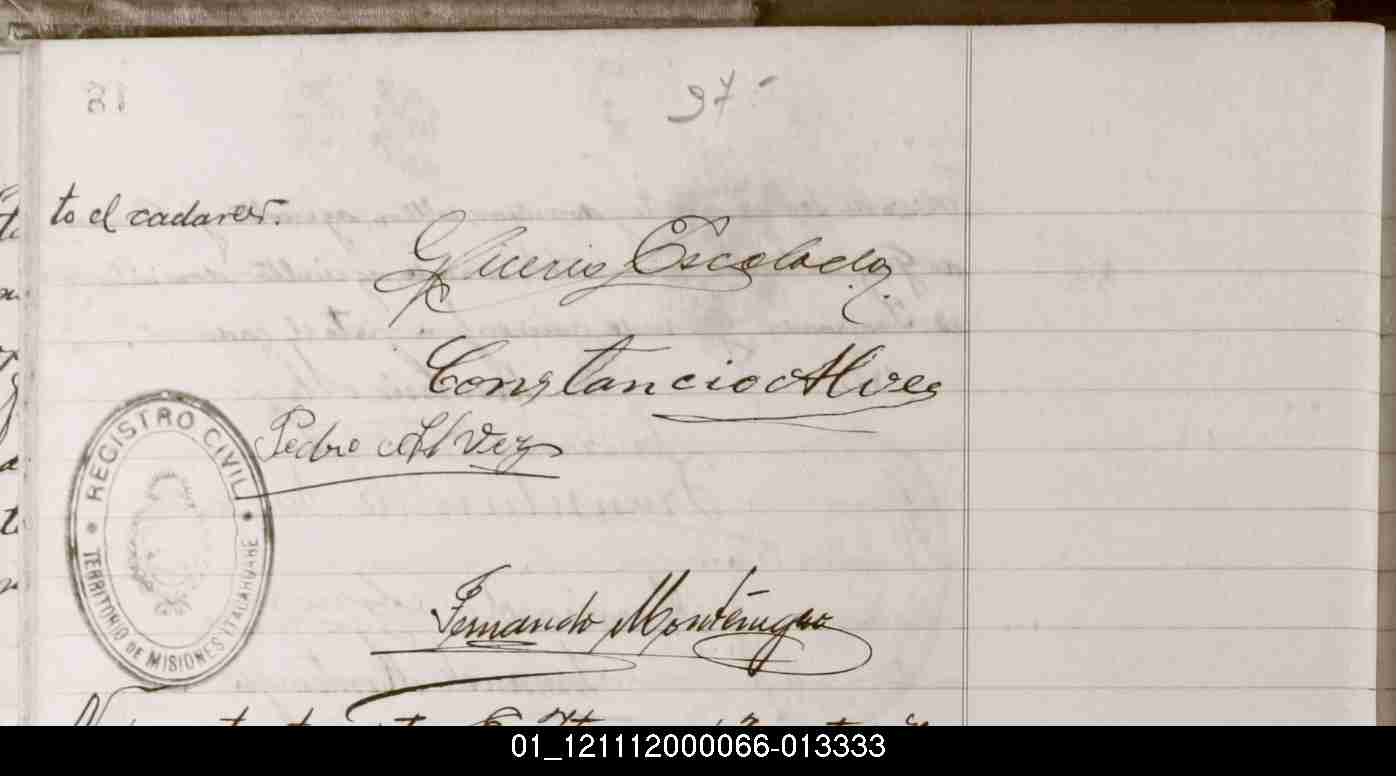 97-
to el cadaver.
Gliceria Escalada
Constancio Alves
Pedro Alvez
REGISTRO CIVIL
TERRITORIO DE MISIONES ITACARUARE
Fernando Montenegro
01_121112000066-013333